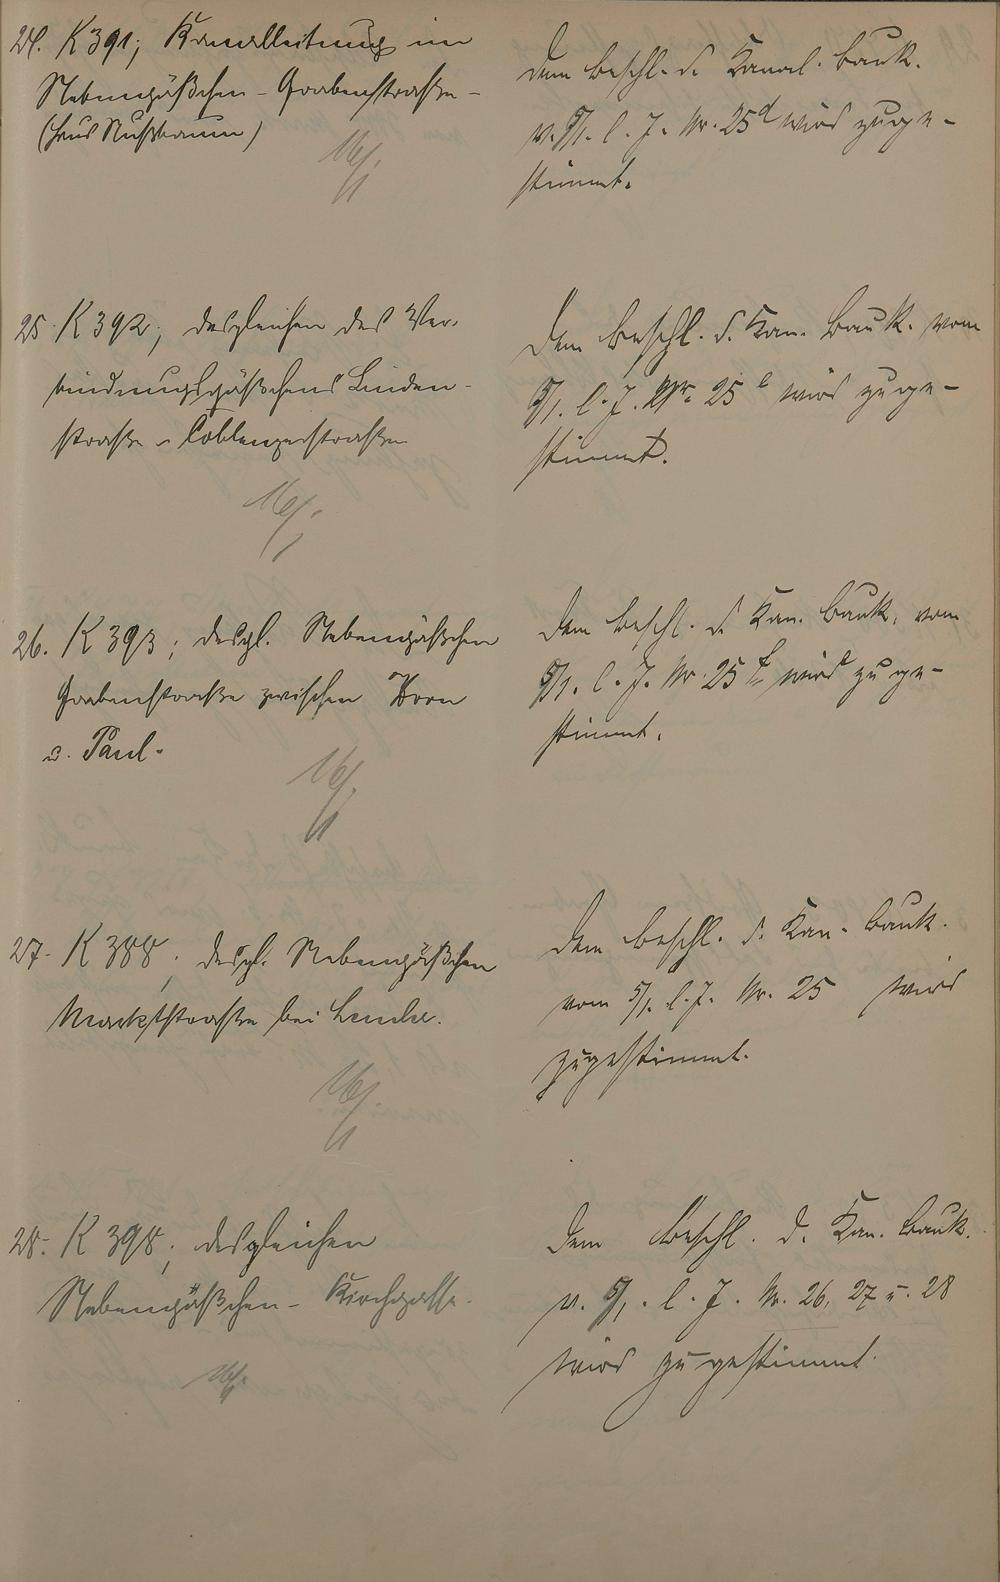 24. K 391; Kanalleitung im
Nebengäßchen - Grabenstraße -
(Haus Nußbaum)
16/1
Dem Beschl. d. Kanal. Bauk.
v. 5/1. l. J. Nr. 25d wird zuge-
stimmt.
25. K 392; desgleichen des Ver-
bindungsgäßchens Linden-
straße - Coblenzerstraße
16/1
Dem Beschl. d. Kan. Bauk. vom
5/1. l. J. Nr. 25 e wird zuge-
stimmt.
26. K 393; desgl. Nebengäßchen
Grabenstraße zwischen Horn
u. Paul.
16/1
Dem Beschl. d. Kan. Bauk. vom
5/1. l. J. Nr. 25 f wird zuge-
stimmt.
27. K 388; desgl. Nebengäßchen
Marktstraße bei
16/1
Dem Beschl. d. Kan. Bauk.
vom 5/1. l. J. Nr. 25 wird
zugestimmt.
28. K 398; desgleichen
Nebengäßchen - Kirchgasse.
16/1
Dem Beschl. d. Kan. Bauk.
v. 5/1. l. J. Nr. 26, 27 u. 28
wird zugestimmt.